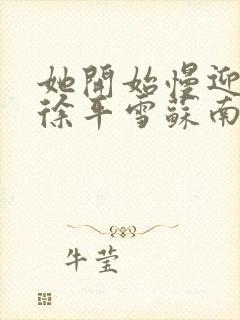 她開始慢迎
徐平雪蘇南
牛莹